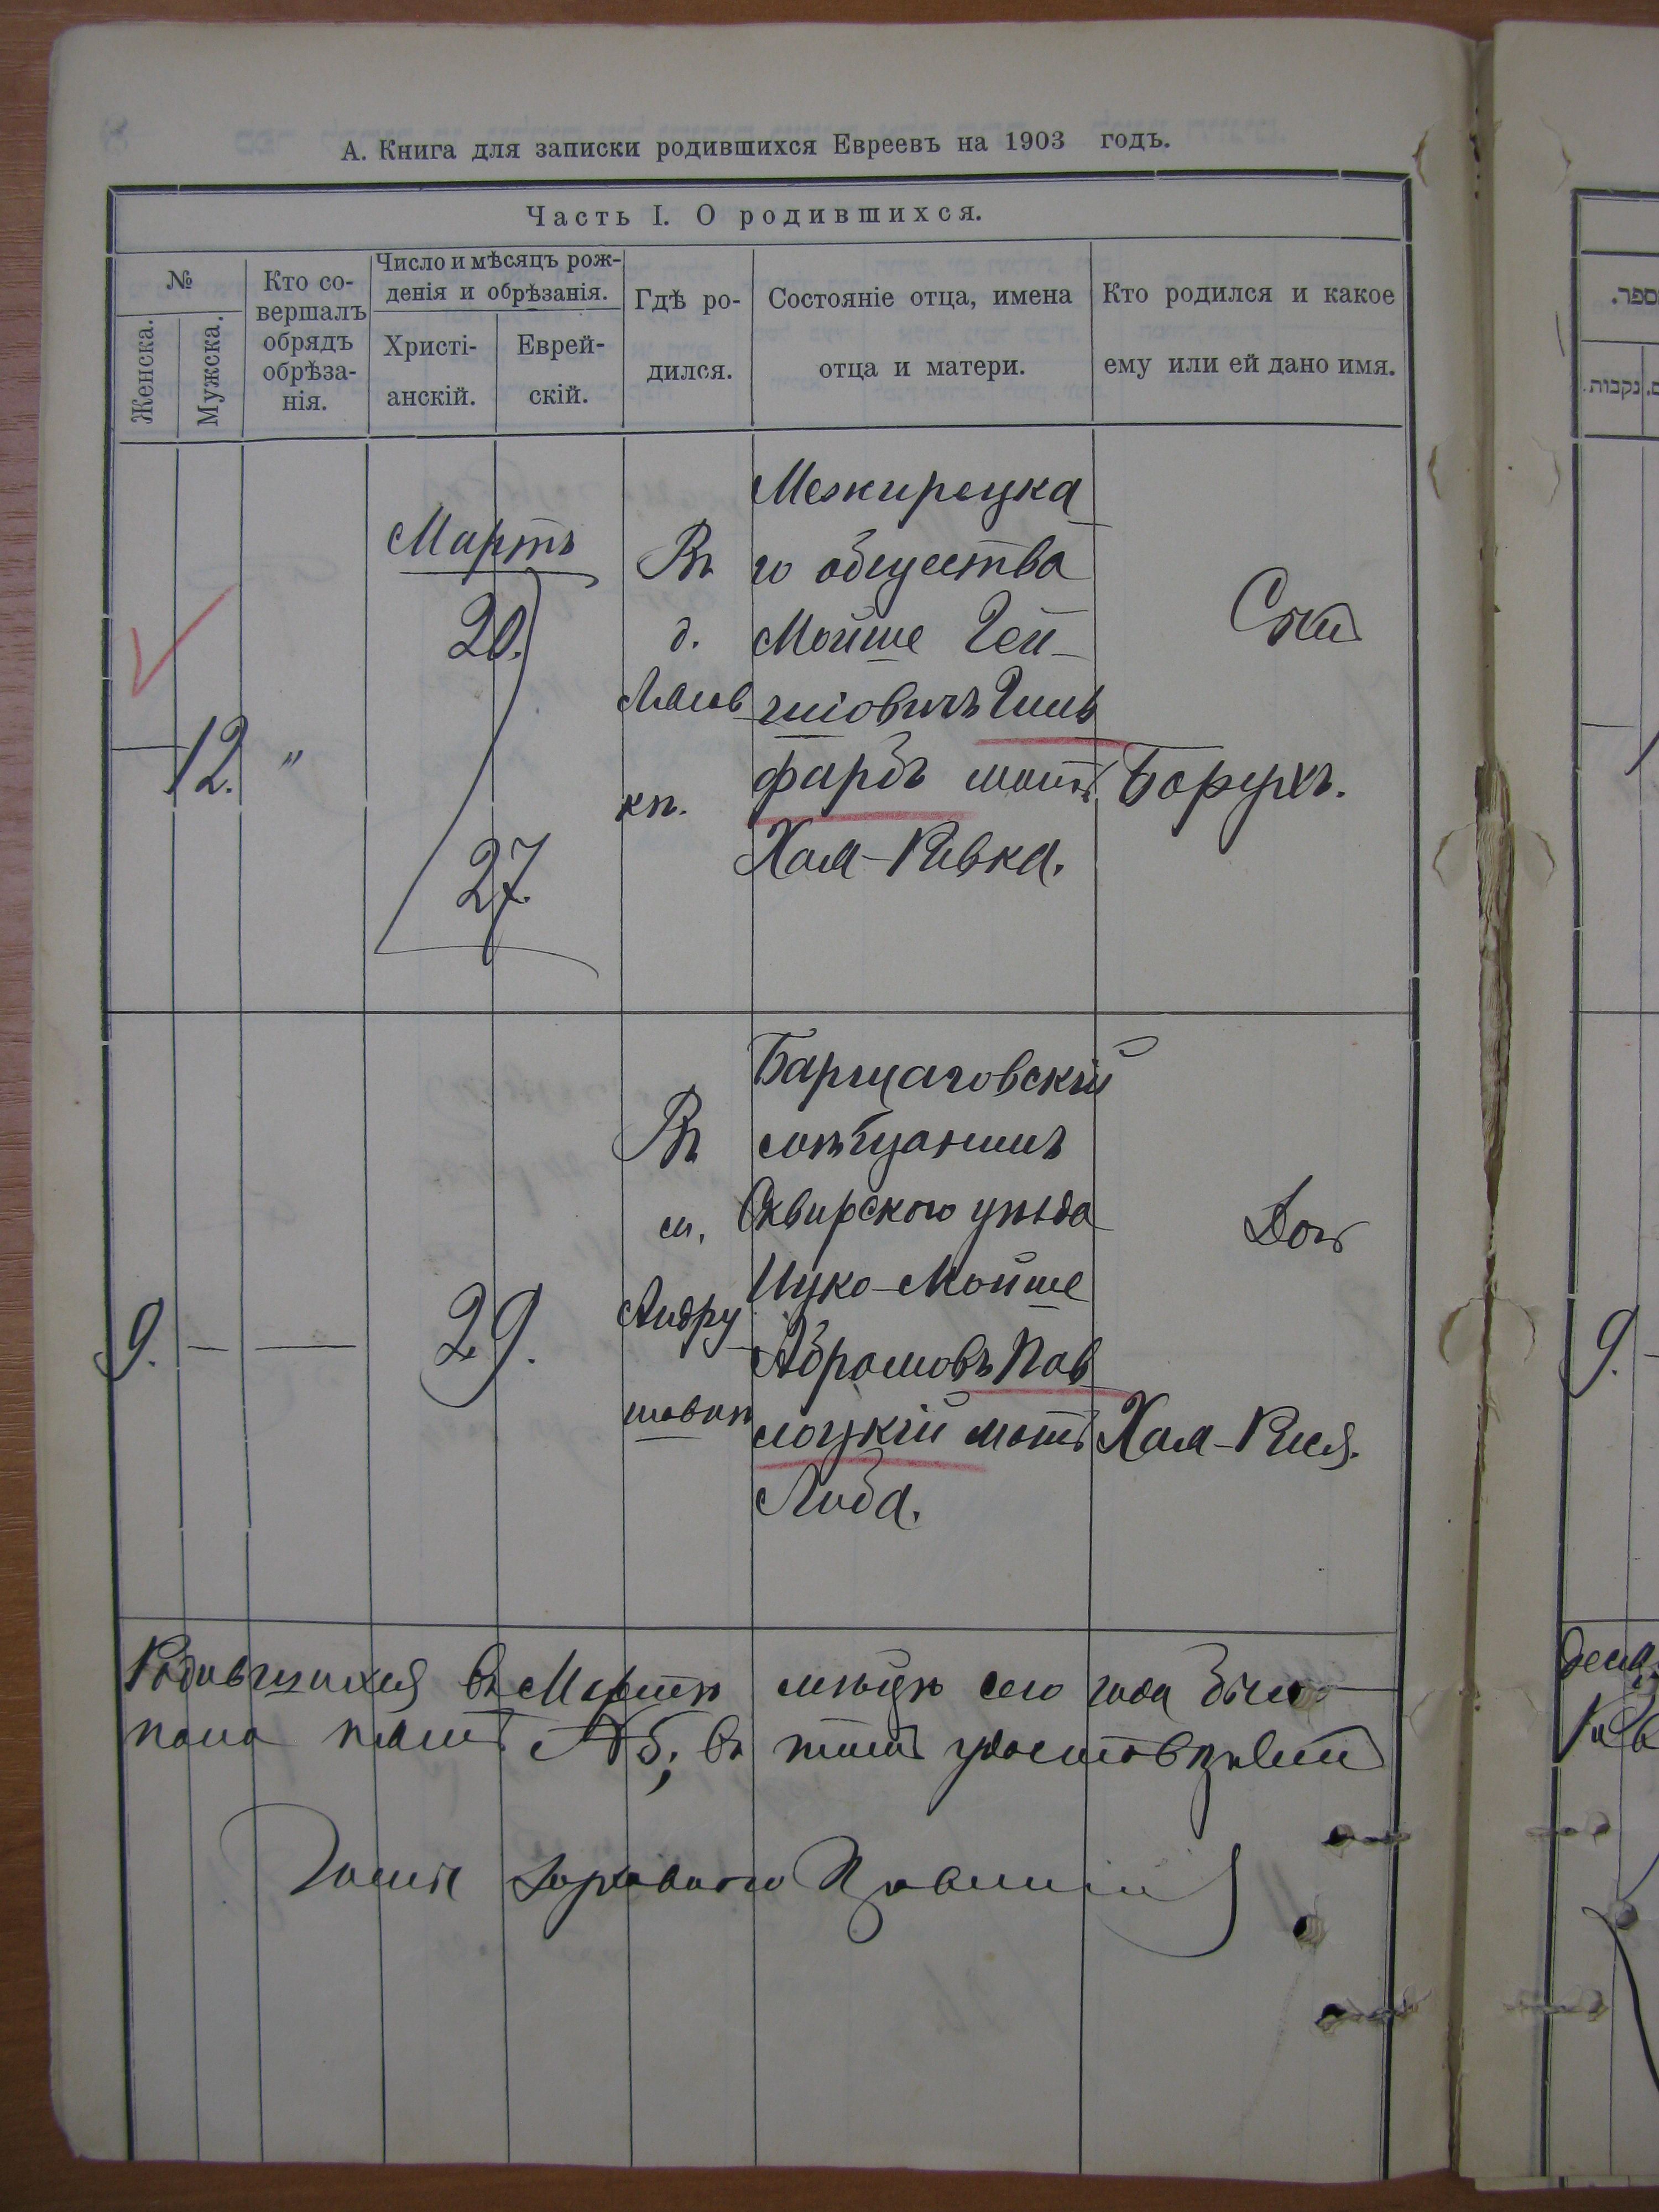 А. Книга для записки родившихся Евреевъ на 1903 годъ.
Часть I. О родившихся.
№
Женска.
Мужска.
Кто со-
вершалъ
обрядъ
обрѣза-
нія.
Число и мѣсяцъ рож-
денія и обрѣзанія.
Христі-
анскій.
Еврей-
скій.
Гдѣ ро-
дился.
Состояніе отца, имена
отца и матери.
Кто родился и какое
ему или ей дано имя.
12.
"
Мартъ
20.
27.
Въ
д.
кп.
Межирецка
го общества
Мойше
фарбъ мать
Хая-Ривка.
Сынъ
Борухъ.
9.
—
—
29.
Въ
м.
Андру
шовкѣ
Барщаговскій
мѣщанинъ
Сквирского уѣзда
Ицко-Мойше
Абрамовъ Пав
лоцкій мать
Либа.
Дочь
Хая-Рися.
Родившихся въ Мартѣ мѣсяцѣ сего года было
пола въ томъ удостовѣряетъ
9.
ספר.
נקבות.